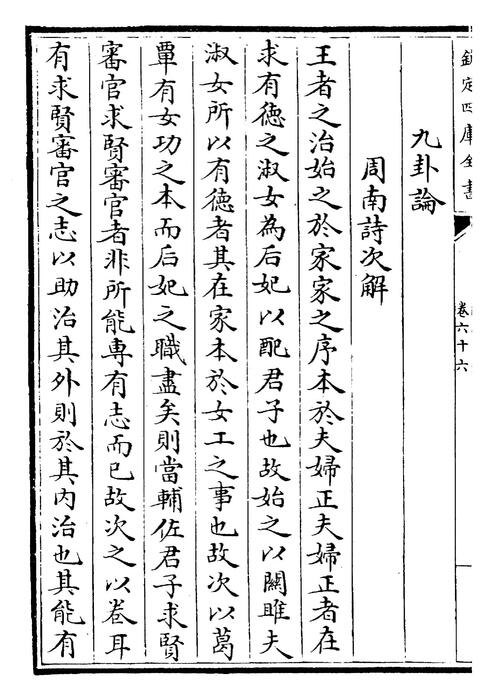 欽定四庫全書
卷六十六
九卦論
周南詩次解
王者之治始之於家家之序本於夫婦正夫婦正者在
求有德之淑女為后妃以配君子也故始之以關雎夫
淑女所以有德者其在家本於女工之事也故次以葛
覃有女功之本而后妃之職盡矣則當輔佐君子求賢
審官求賢審官者非所能專有志而已故次之以卷耳
有求賢審官之志以助治其外則於其內治也其能有